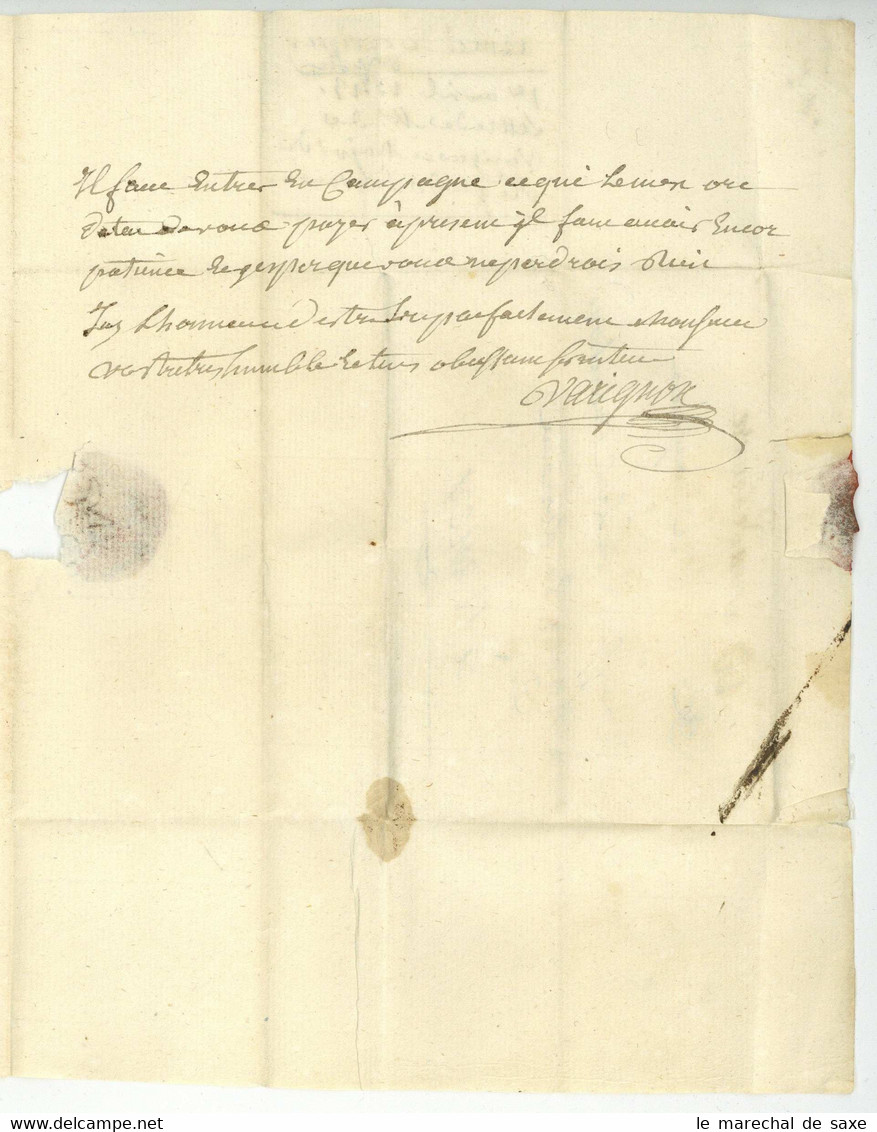 Il faut Entrer En Campagne ce qui le met ore
detat de vous payer à present jl faut avoir Encor
patience Et jespere que vous ne perdrois Rien
Jay Lhonneur destre Tres parfaitement Monsieur
vostre tres humble Et tres obeissant serviteur
Varignon
le marechal de saxe